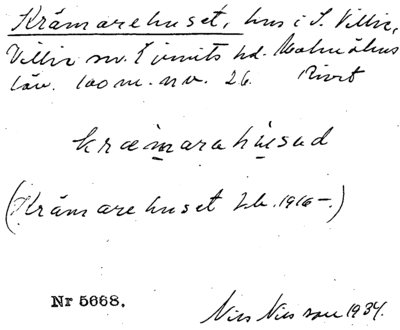 Krämarehuset, hus i S. Villie,
Villie sn. Ljunits hd. Malmöhus
län. 100 m. nv. 26. Rivet
kræmarahusəd
(Krämarehuset Jb. 1916-.)
Nr 5668.
Nils Nilsson 1934.